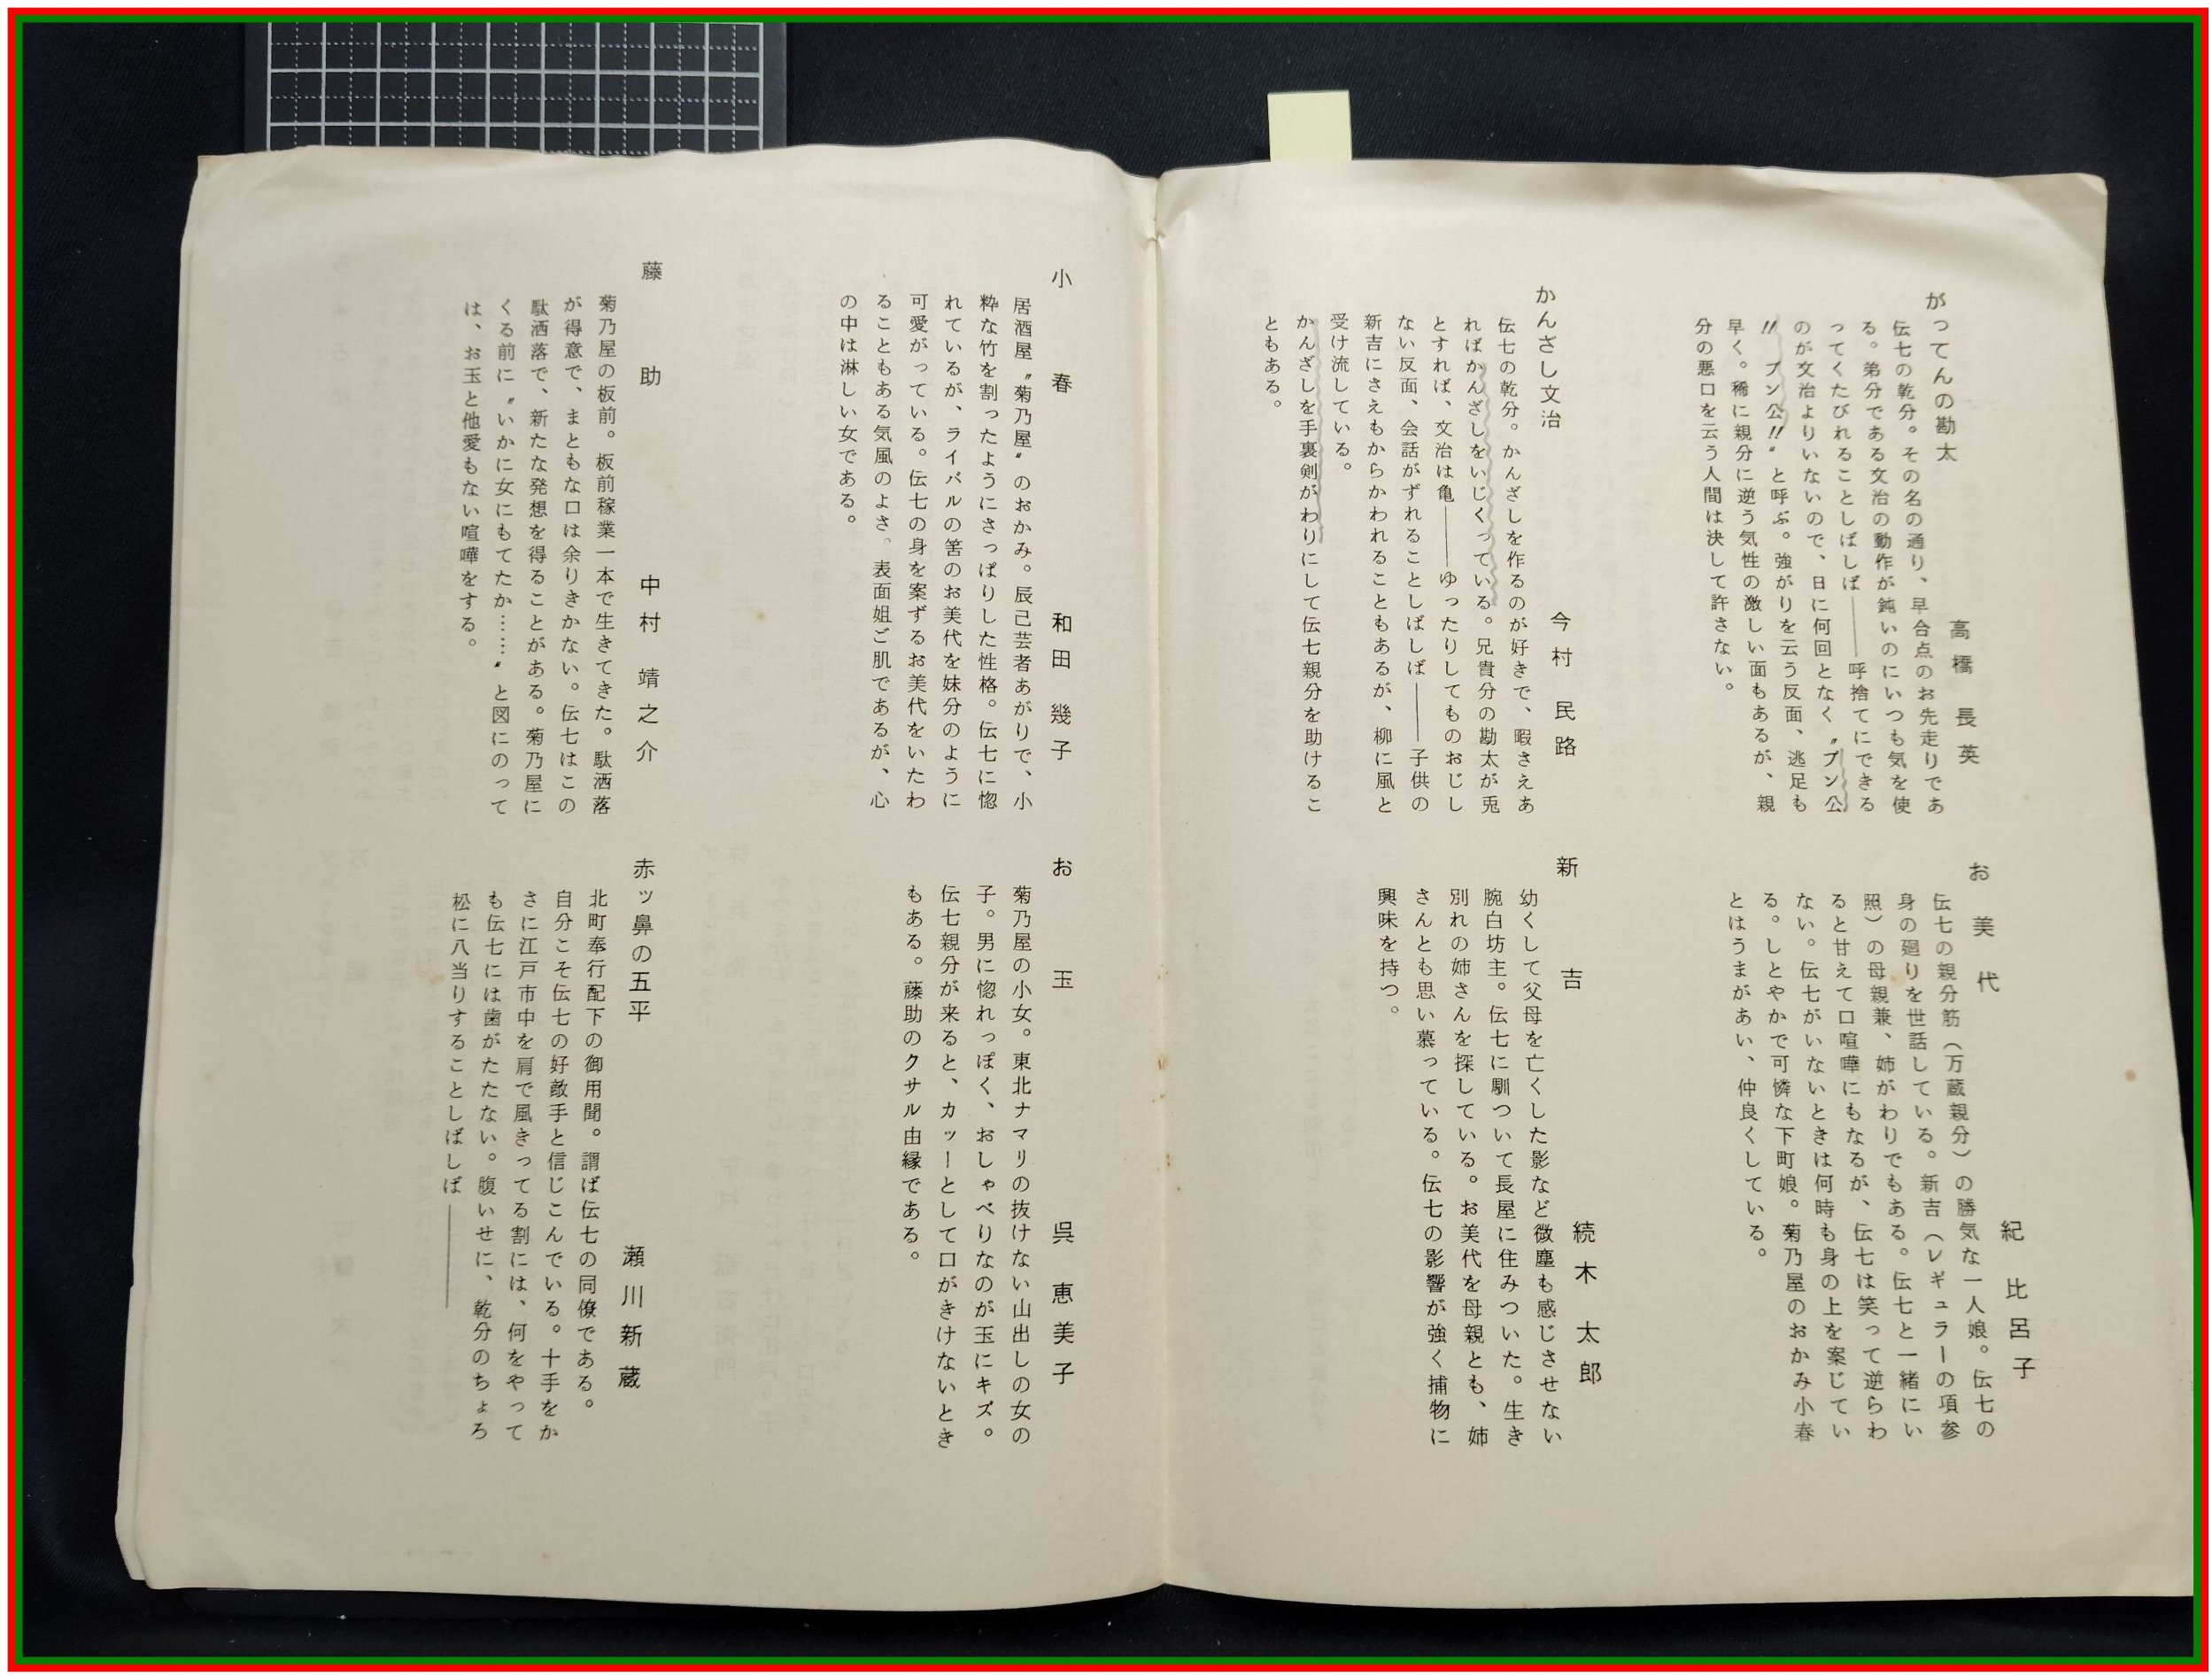 がってんの勘太　高橋長英
伝七の乾分。その名の通り、早合点のお先走りであ
る。弟分である文治の動作が鈍いのにいつも気を使
ってくたびれることしばしば――呼捨てにできる
のが文治よりいないので、日に何回となく〝ブン公
!!　ブン公!!〟と呼ぶ。強がりを云う反面、逃足も
早く。稀に親分に逆う気性の激しい面もあるが、親
分の悪口を云う人間は決して許さない。
かんざし文治　今村民路
伝七の乾分。かんざしを作るのが好きで、暇さえあ
ればかんざしをいじくっている。兄貴分の勘太が兎
とすれば、文治は亀――ゆったりしてものおじし
ない反面、会話がずれることしばしば――子供の
新吉にさえもからかわれることもあるが、柳に風と
受け流している。
かんざしを手裏剣がわりにして伝七親分を助けるこ
ともある。
お美代　紀比呂子
伝七の親分筋（万蔵親分）の勝気な一人娘。伝七の
身の廻りを世話している。新吉（レギュラーの項参
照）の母親兼、姉がわりでもある。伝七と一緒にい
ると甘えて口喧嘩にもなるが、伝七は笑って逆らわ
ない。伝七がいないときは何時も身の上を案じてい
る。しとやかで可憐な下町娘。菊乃屋のおかみ小春
とはうまがあい、仲良くしている。
新吉　続木太郎
幼くして父母を亡くした影など微塵も感じさせない
腕白坊主。伝七に馴ついて長屋に住みついた。生き
別れの姉さんを探している。お美代を母親とも、姉
さんとも思い慕っている。伝七の影響が強く捕物に
興味を持つ。
小春　和田幾子
居酒屋〝菊乃屋〟のおかみ。辰己芸者あがりで、小
粋な竹を割ったようにさっぱりした性格。伝七に惚
れているが、ライバルの筈のお美代を妹分のように
可愛がっている。伝七の身を案ずるお美代をいたわ
ることもある気風のよさ。表面姐ご肌であるが、心
の中は淋しい女である。
藤助　中村靖之介
菊乃屋の板前。板前稼業一本で生きてきた。駄洒落
が得意で、まともな口は余りきかない。伝七はこの
駄洒落で、新たな発想を得ることがある。菊乃屋に
くる前に〝いかに女にもてたか……〟と図にのって
は、お玉と他愛もない喧嘩をする。
お玉　呉恵美子
菊乃屋の小女。東北ナマリの抜けない山出しの女の
子。男に惚れっぽく、おしゃべりなのが玉にキズ。
伝七親分が来ると、カッーとして口がきけないとき
もある。藤助のクサル由縁である。
赤ッ鼻の五平　瀬川新蔵
北町奉行配下の御用聞。謂ば伝七の同僚である。
自分こそ伝七の好敵手と信じこんでいる。十手をか
さに江戸市中を肩で風きってる割には、何をやって
も伝七には歯がたたない。腹いせに、乾分のちょろ
松に八当りすることしばしば――